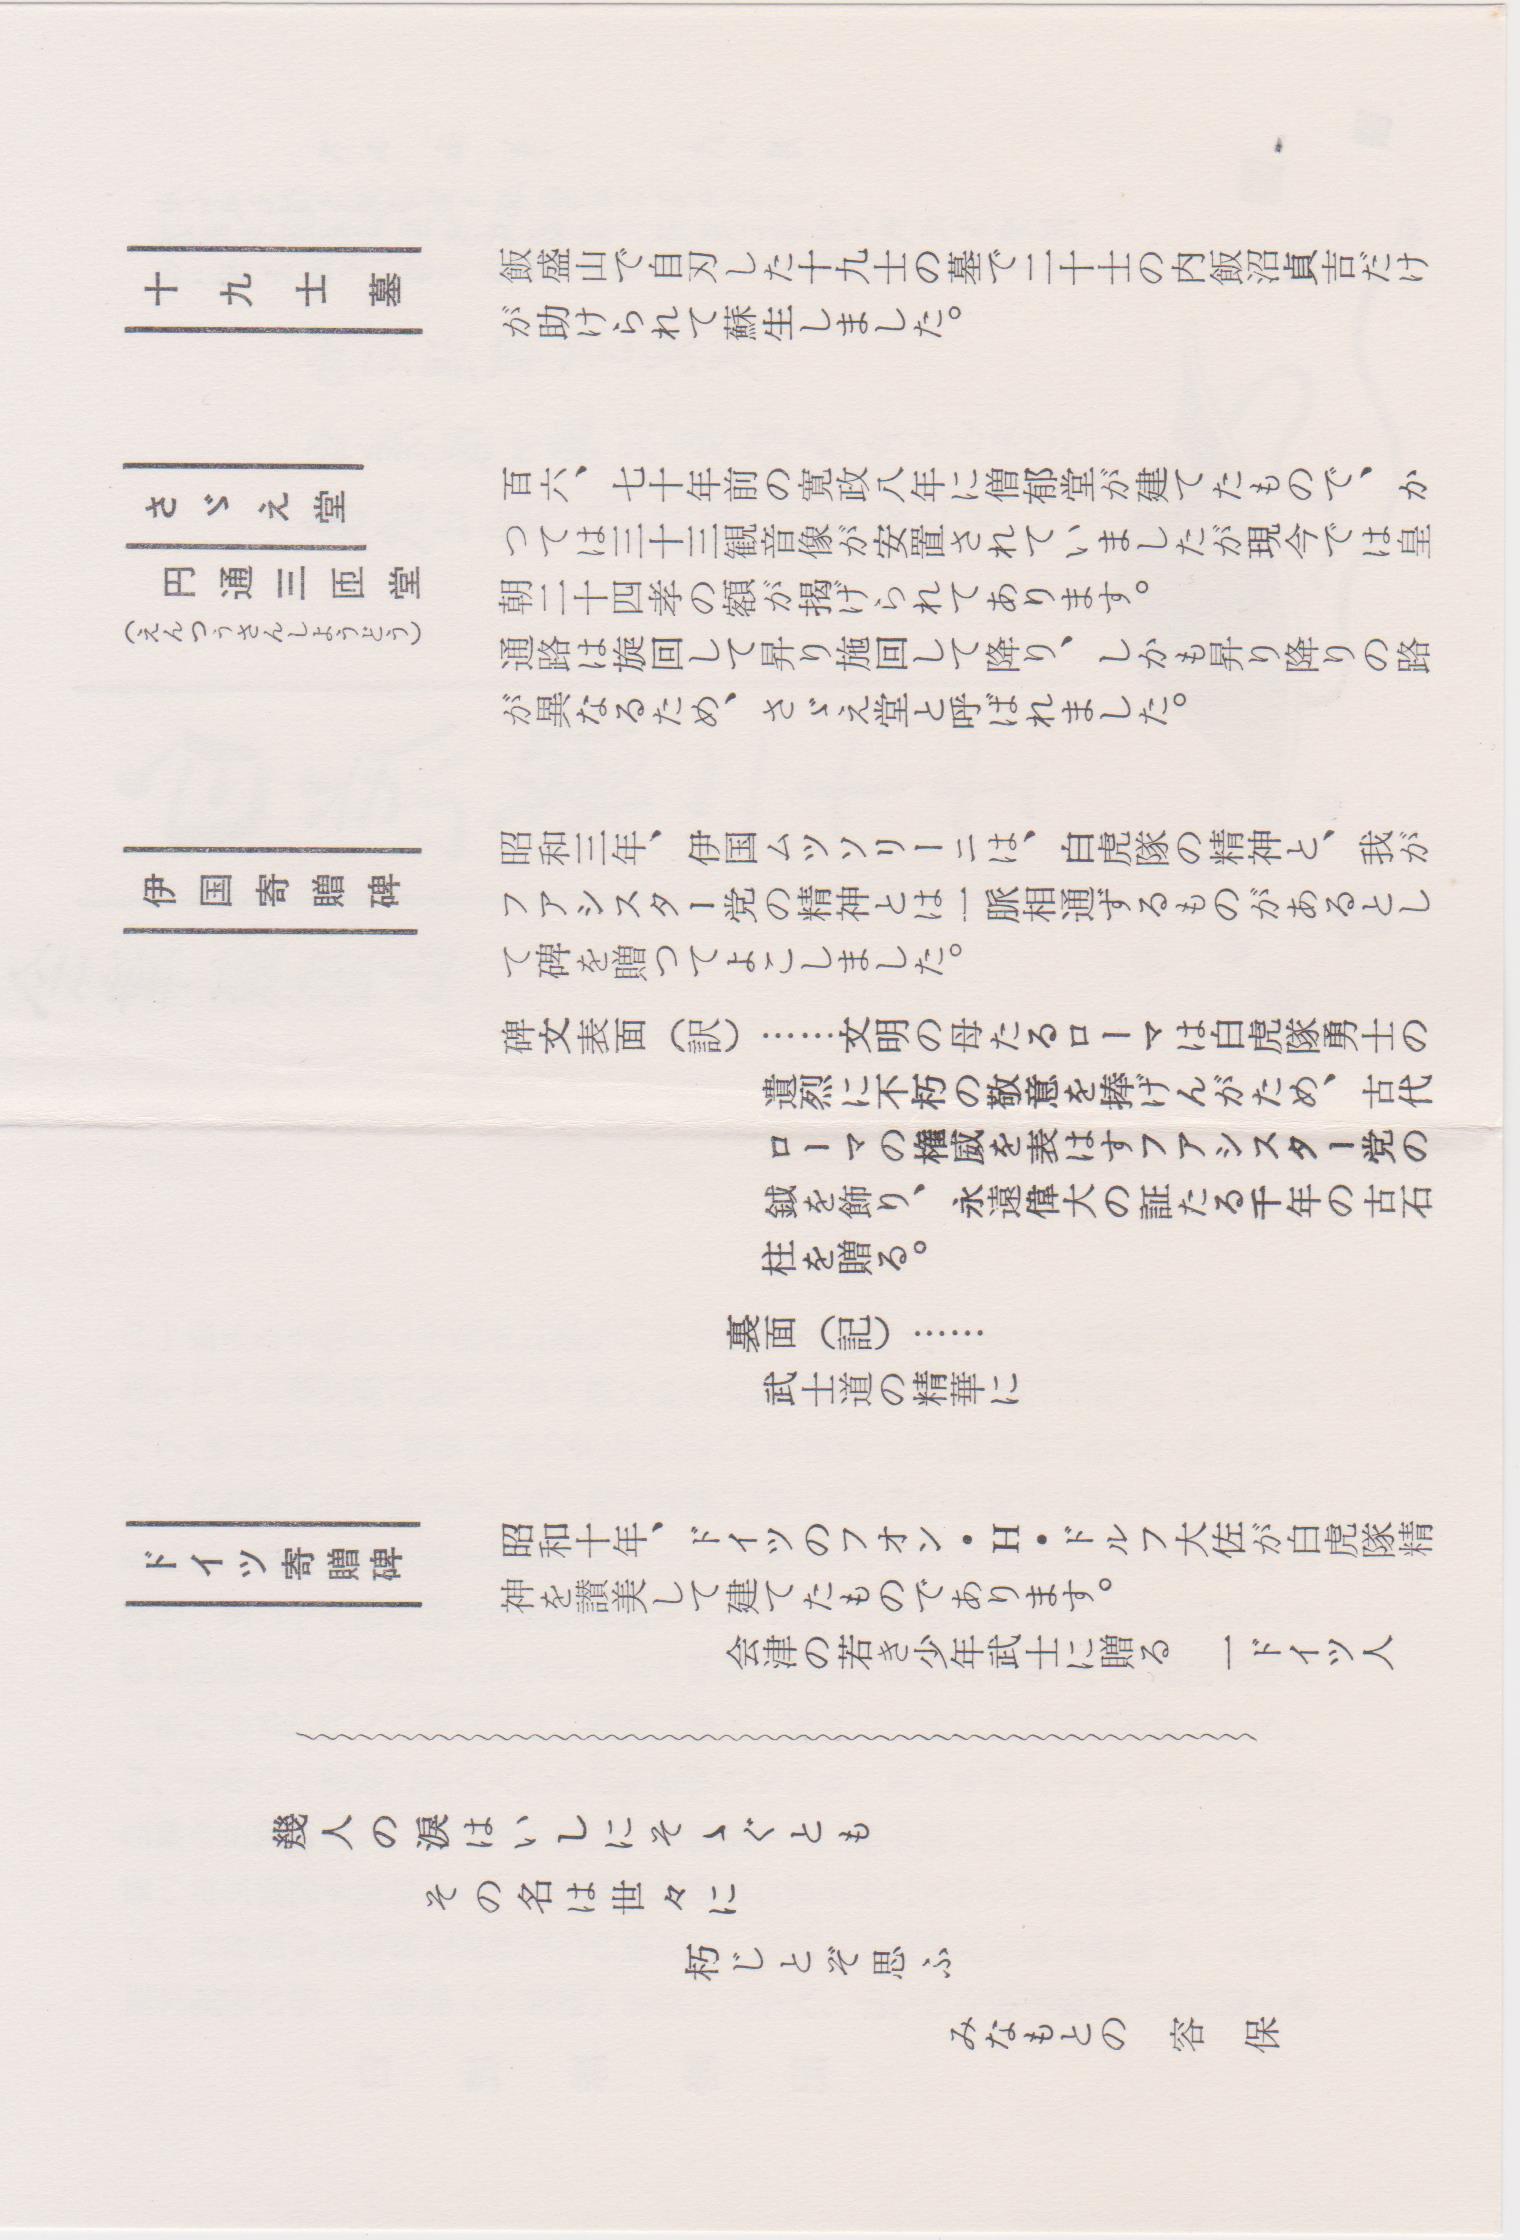 十九士墓
飯盛山で自刃した十九士の墓で二十士の内飯沼貞吉だけ
が助けられて蘇生しました。
さゞえ堂
円通三匝堂
(えんつうさんしようどう)
百六、七十年前の寛政八年に僧郁堂が建てたもので、か
つては三十三観音像が安置されていましたが現今では皇
朝二十四孝の額が掲げられてあります。
通路は旋回して昇り施回して降り、しかも昇り降りの路
が異なるため、さゞえ堂と呼ばれました。
伊国寄贈碑
昭和三年、伊国ムツソリーニは、白虎隊の精神と、我が
フアシスター党の精神とは一脈相通ずるものがあるとし
て碑を贈つてよこしました。
碑文表面(訳)……文明の母たるローマは白虎隊勇士の
遺烈に不朽の敬意を捧げんがため、古代
ローマの権威を表はすフアシスター党の
鉞を飾り、永遠偉大の証たる千年の古石
柱を贈る。
裏面(記)……
武士道の精華に
ドイツ寄贈碑
昭和十年、ドイツのフオン・H・ドルフ大佐が白虎隊精
神を讃美して建てたものであります。
会津の若き少年武士に贈る 一ドイツ人
幾人の涙はいしにそゝぐとも
その名は世々に
朽じとぞ思ふ
みなもとの 容 保